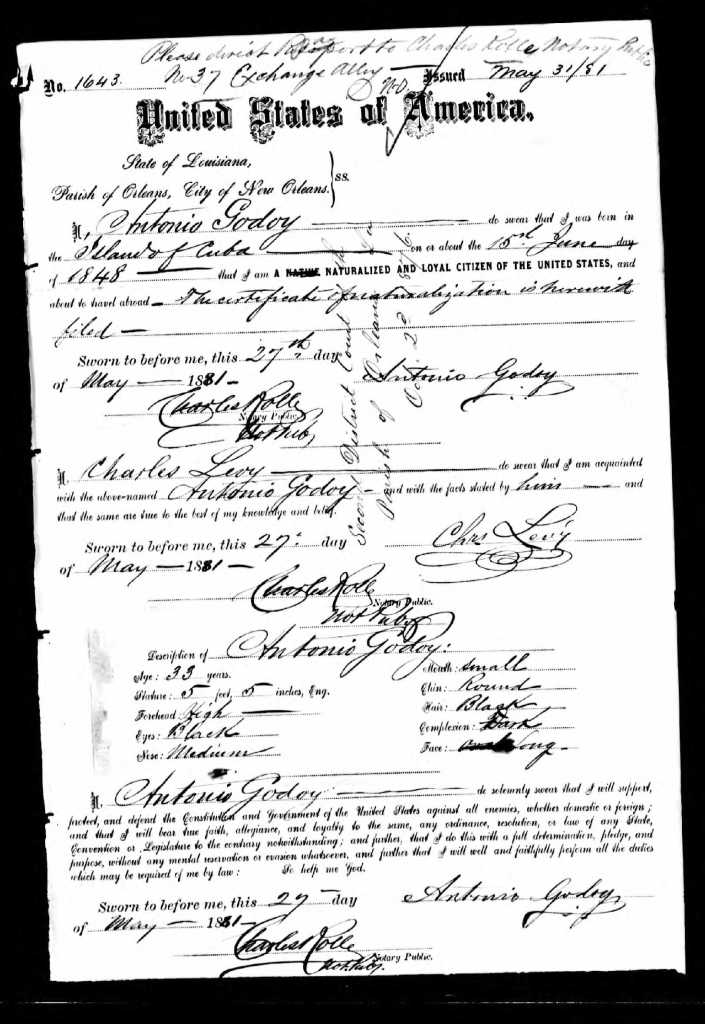 Please direct Passport to Charles Rolle Notary Public
No 37 Exchange Alley N.O
No. 1643. Issued May 31/81
United States of America.
State of Louisiana,
Parish of Orleans, City of New Orleans. } 88.
I, Antonio Godoy do swear that I was born in
the Island of Cuba on or about the 15st June day
of 1848 that I am a NATIVE NATURALIZED AND LOYAL CITIZEN OF THE UNITED STATES, and
about to travel abroad – The certificate of naturalization is herewith
filed –
Second District Court of the
Parish of Orleans La
Oct. 23 1876.
Sworn to before me, this 27th day
of May – 1881 –
Antonio Godoy
Charles Rolle
Notary Public.
Not Pub,
I, Charles Levy do swear that I am acquainted
with the above-named Antonio Godoy – and with the facts stated by him – and
that the same are true to the best of my knowledge and belief.
Sworn to before me, this 27 day
of May – 1881 –
Chrs Levy
Charles Rolle
Notary Public.
Not Pub,
Description of Antonio Godoy:
Age: 33 years. Mouth: small
Stature: 5 feet, 5 inches, Eng. Chin: Round
Forehead: High Hair: Black
Eyes: Black Complexion: Dark
Nose: Medium Face: long
I, Antonio Godoy do solemnly swear that I will support,
protect, and defend the Constitution and Government of the United States against all enemies, whether domestic or foreign;
and that I will bear true faith, allegiance, and loyalty to the same, any ordinance, resolution, or law of any State,
Convention, or Legislature to the contrary notwithstanding; and further, that I do this with a full determination, pledge, and
purpose, without any mental reservation or evasion whatsoever, and further that I will well and faithfully perform all the duties
which may be required of me by law: So help me God.
Sworn to before me, this 27 – day
of May – 1881 –
Antonio Godoy
Charles Rolle
Notary Public.
Not Pub,